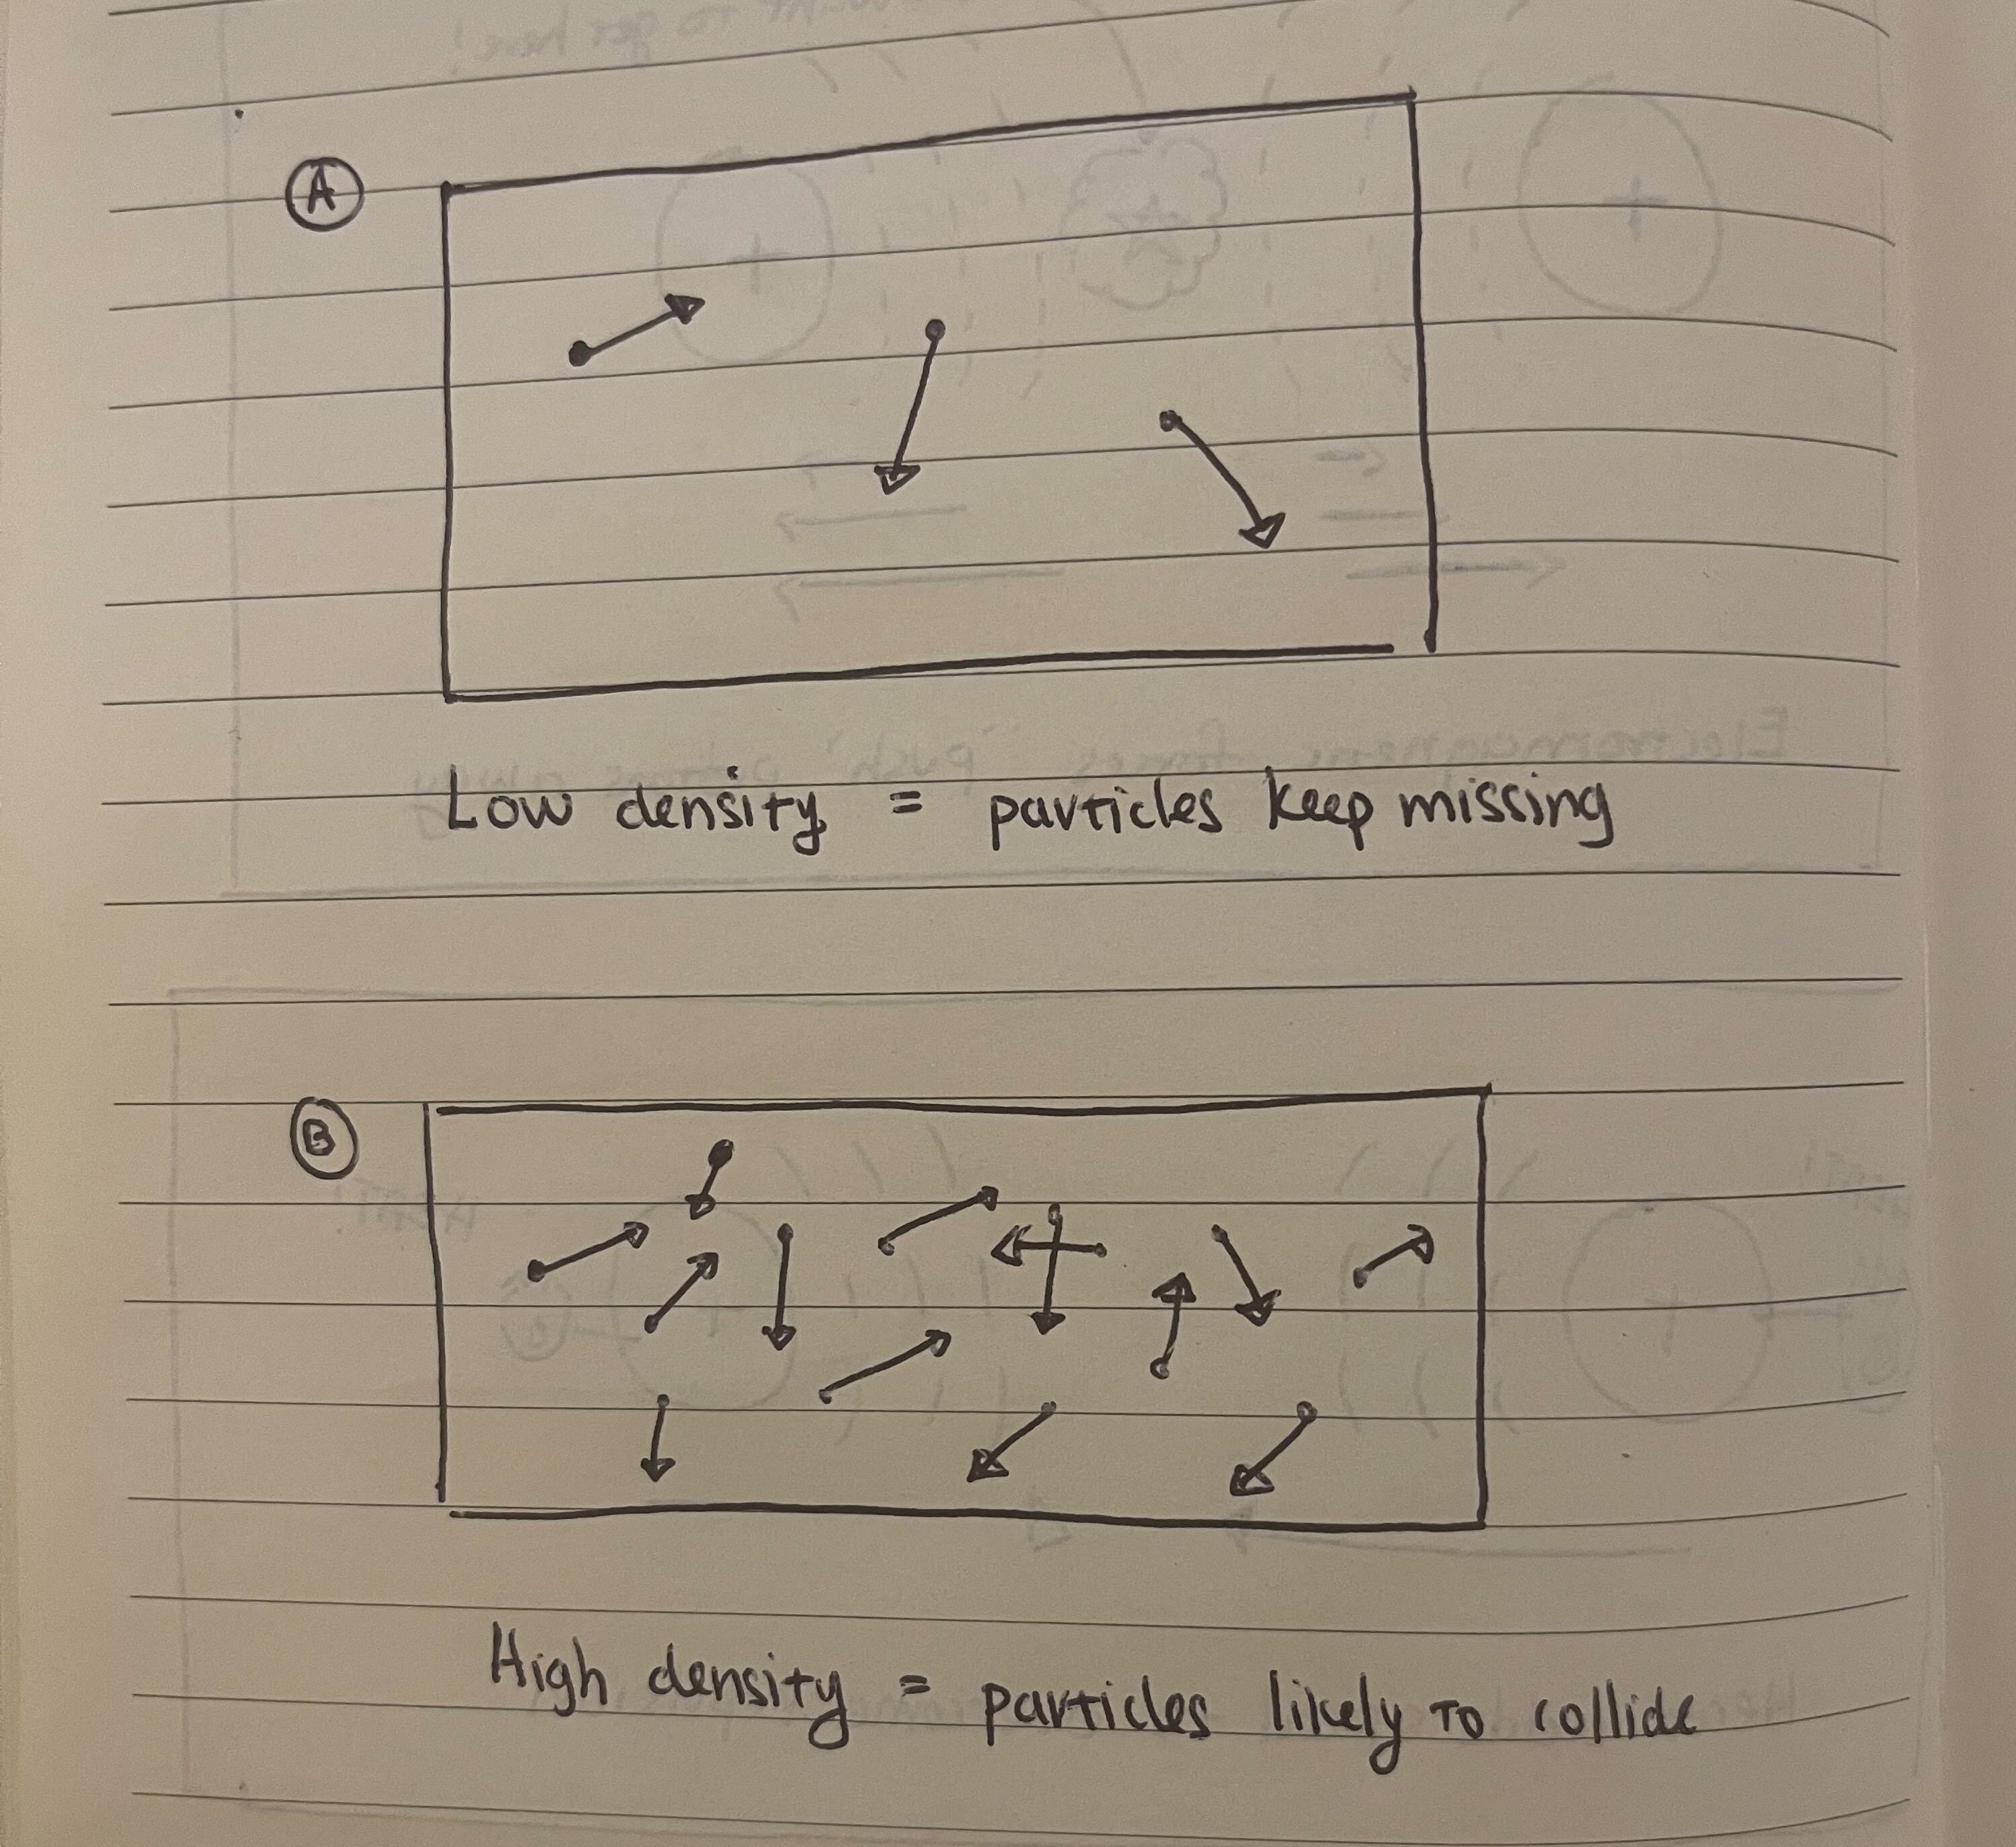 A
Low density = particles keep missing
B
High density = particles likely to collide